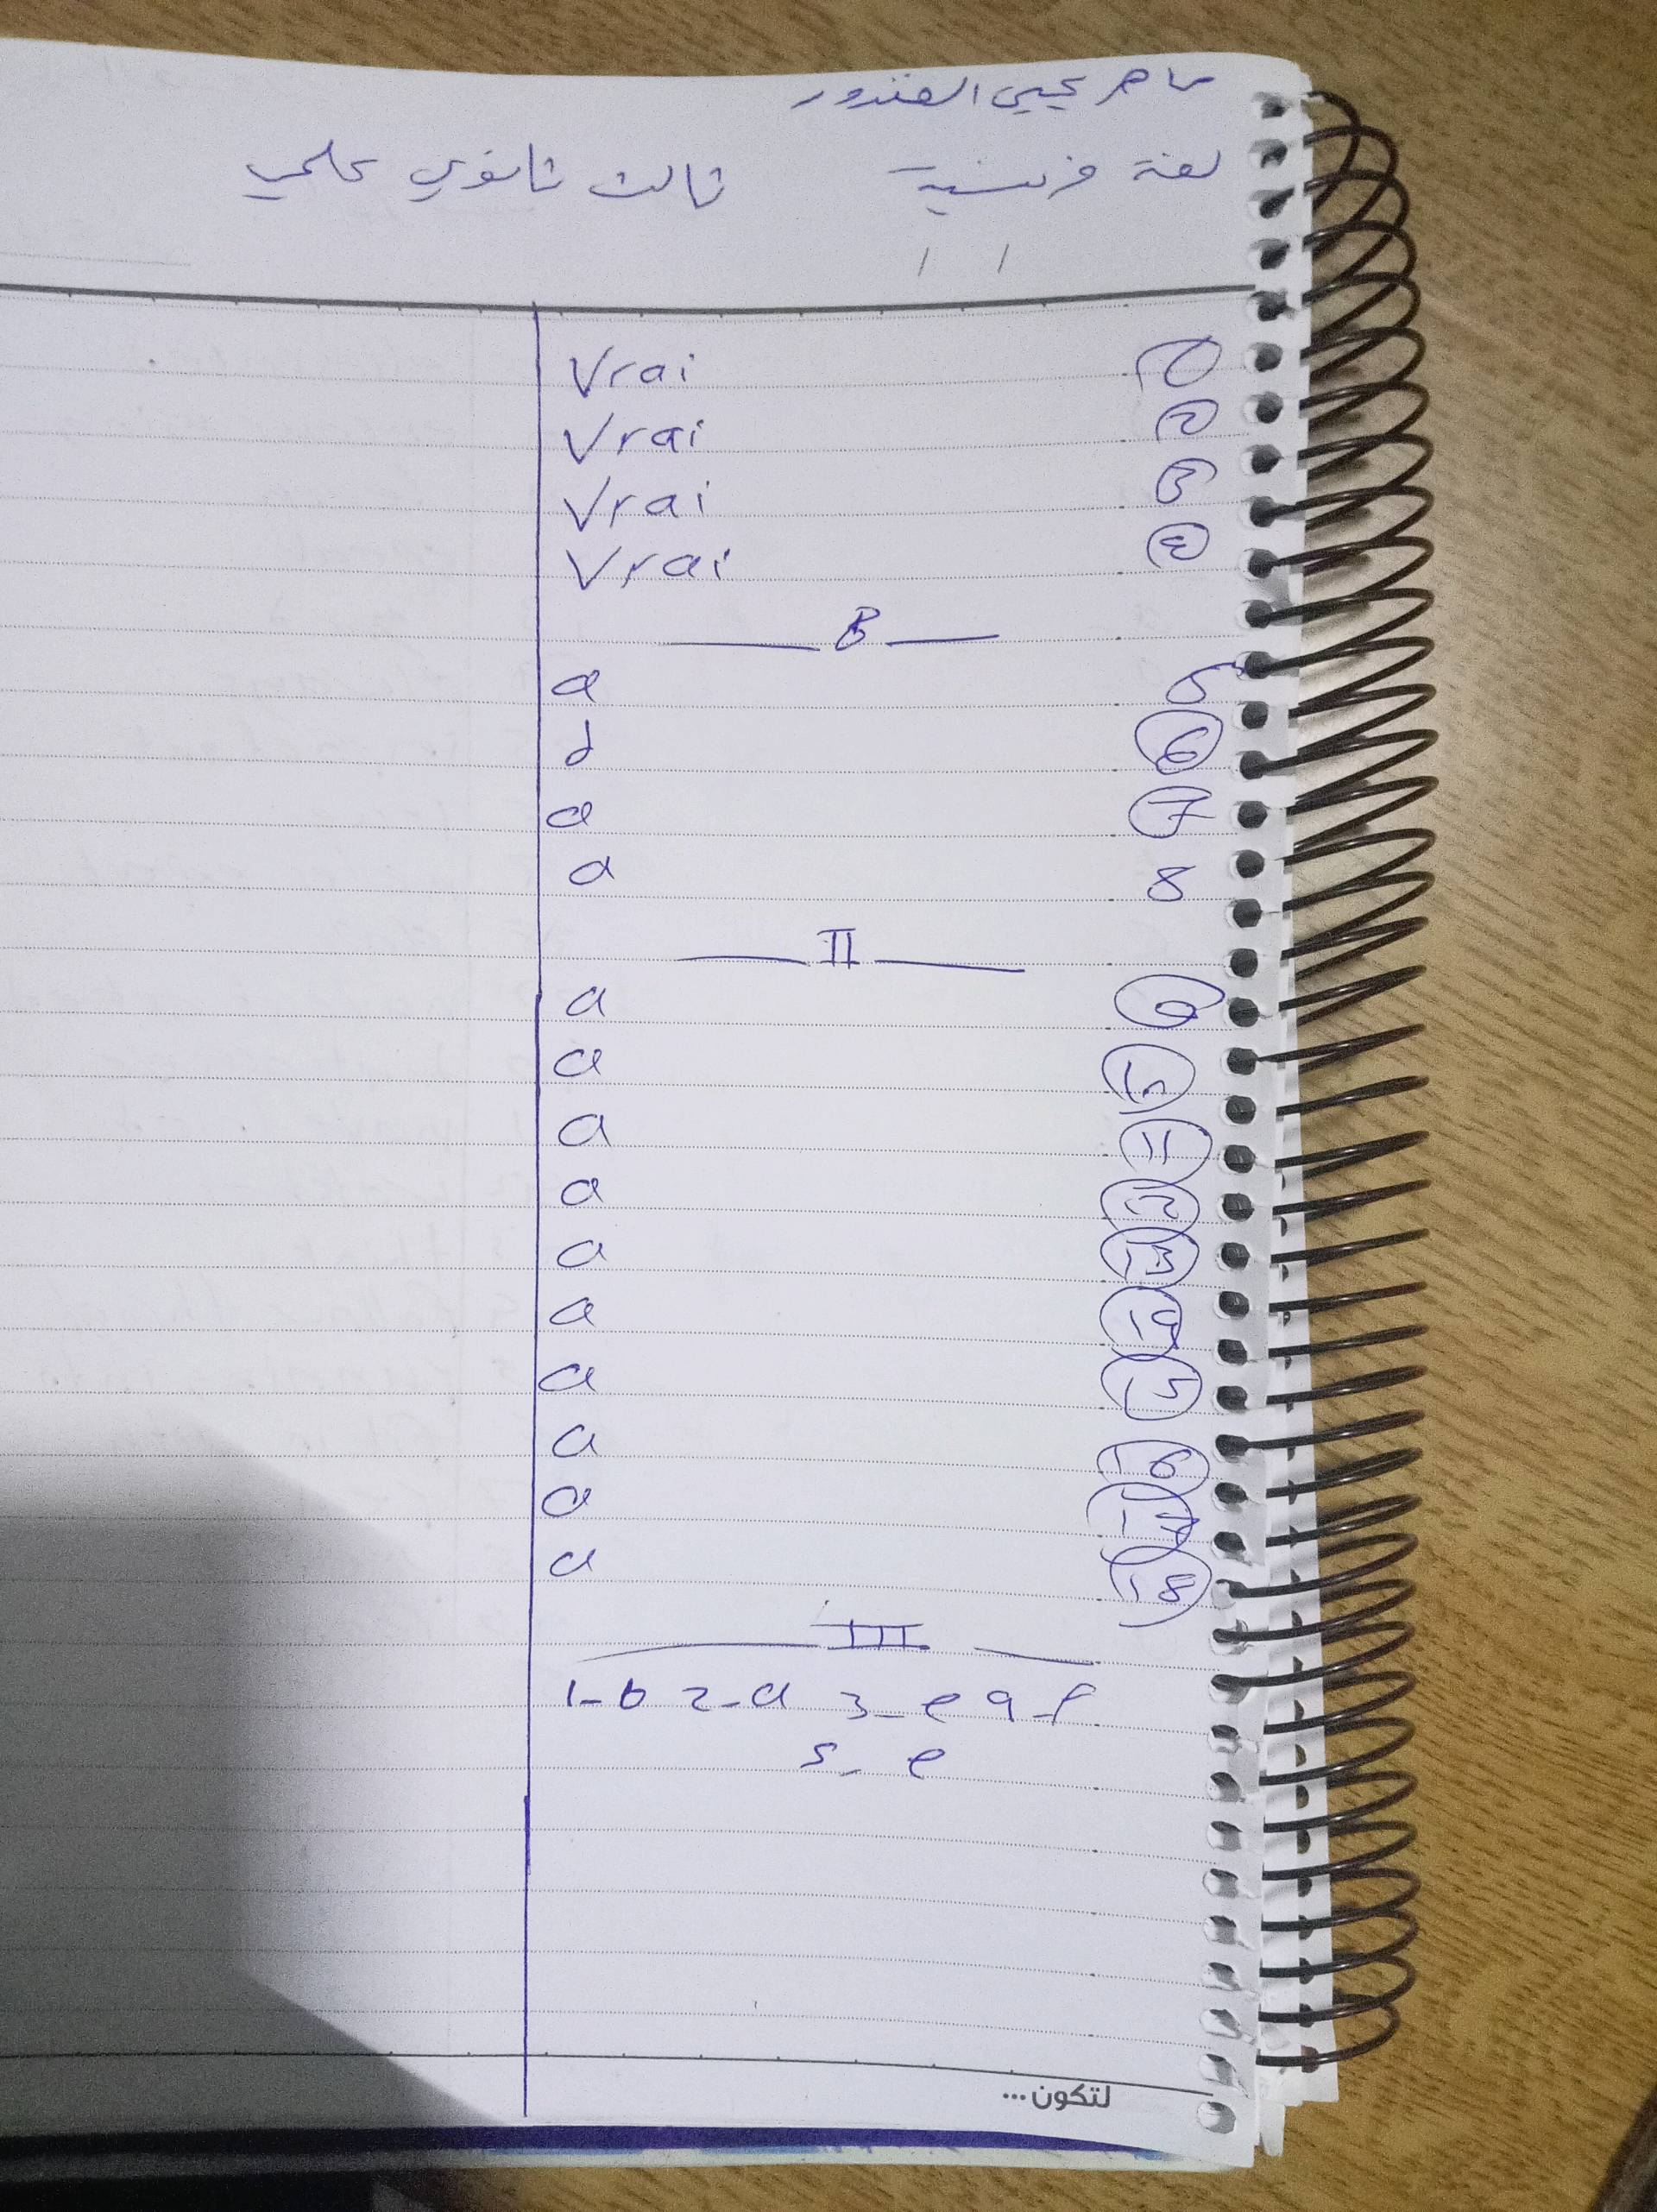 ماهر يحيى الغندور
لغة فرنسية ثالث ثانوي علمي
/ /
Vrai ①
Vrai ②
Vrai ③
Vrai ④
B
a 5
d ⑥
a ⑦
a 8
II
a ⑨
a ⑩
a ⑪
a ⑫
a ⑬
a ⑭
a ⑮
a ⑯
a ⑰
a ⑱
III
1-b 2-a 3-e 4-f
5-e
لتكون...